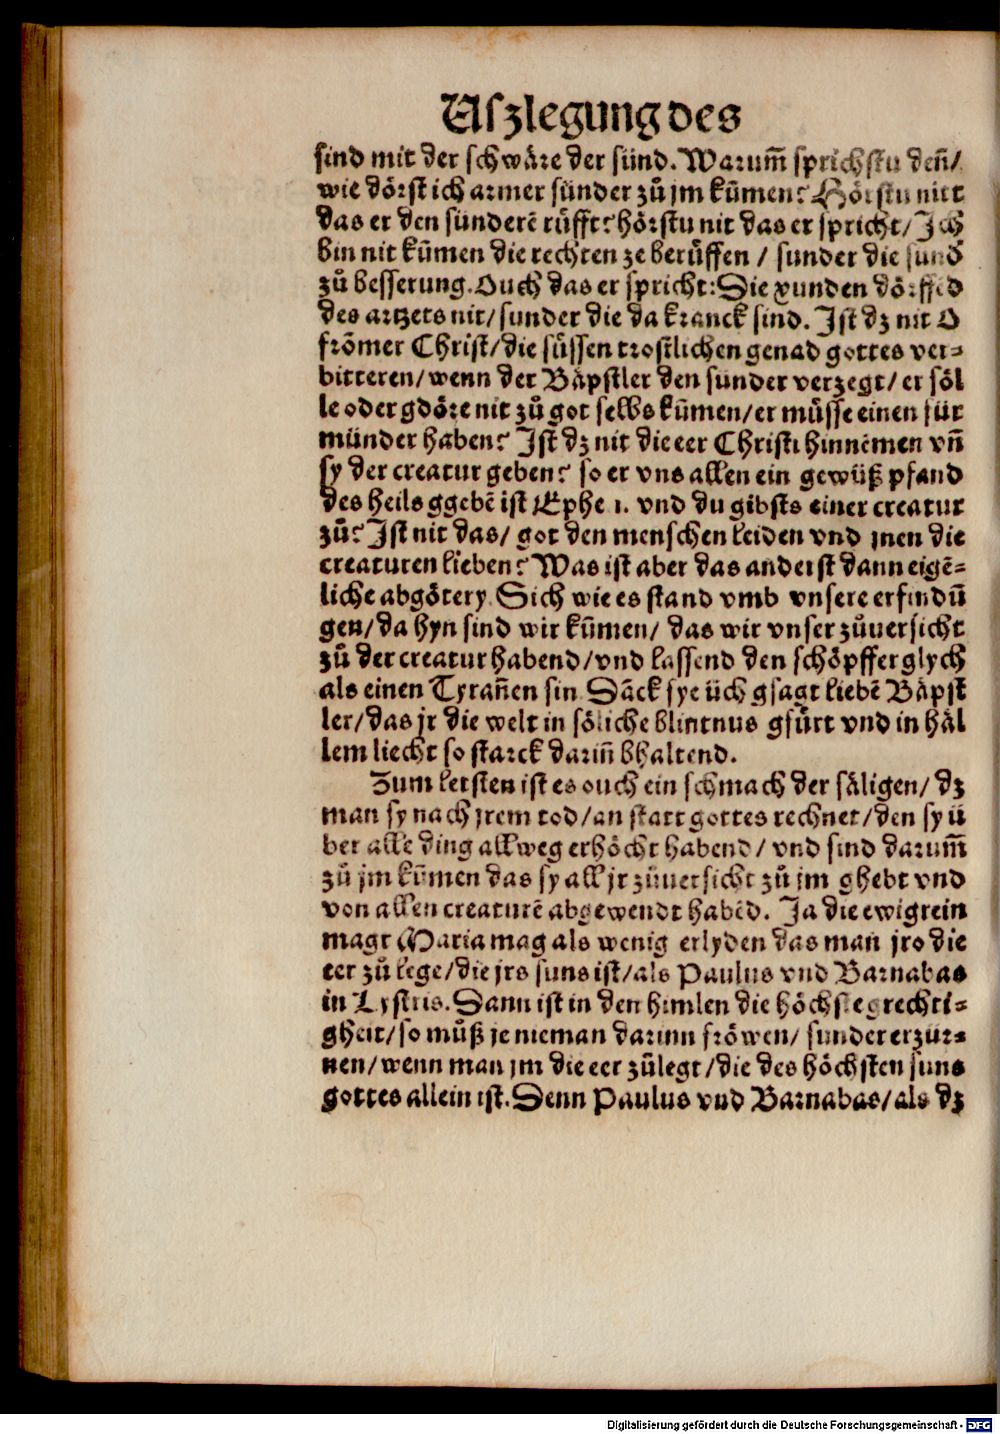 Uſzlegung des
ſind mit der ſchwäre der ſünd. Warum̃ ſprichſtu deñ/
wie dörſt ich armer ſünder zů jm kũmen? Hörſtu nitt
das er den ſünderẽ rüfft? hörſtu nit das er ſpricht/ Ich
bin nit kũmen die rechten ze berüffen / ſunder die ſund
zů beſſerung. Ouch das er ſpricht: Die xunden dörffẽd
des artzets nit/ ſunder die da kranck ſind. Iſt dz nit O
frõmer Chriſt/ die ſüſſen troſtlichen genad gottes ver-
bitteren/ wenn der Bäpſtler den ſünder verzegt/ er ſöl
le oder gdöre nit zů got ſelbs kũmen/ er müſſe einen für
münder haben? Iſt dz nit die eer Chriſti hinnẽmen vñ
ſy der creatur geben? ſo er vns allen ein gewüß pfand
des heils ggebẽ iſt Ephe 1. vnd du gibſts einer creatur
zů? Iſt nit das/ got den menſchen leiden vnd jnen die
creaturen lieben? Was iſt aber das anderſt dann eigẽ-
liche abgötery. Sich wie es ſtand vmb vnſere erfindũ
gen/ da hyn ſind wir kũmen/ das wir vnſer zůuerſicht
zů der creatur habend/ vnd laſſend den ſchöpffer glych
als einen Tyrañen ſin. Dãck ſye üch gſagt liebẽ Bäpſt
ler/ das jr die welt in ſöliche blintnus gfürt vnd in häl
lem liecht ſo ſtarck dariñ bhaltend.
Zum letſten iſt es ouch ein ſchmach der ſäligen/ dz
man ſy nach jrem tod/ an ſtatt gottes rechnet/ den ſy ü
ber alle ding allweg erhöcht habend/ vnd ſind darum̃
zů jm kũmen das ſy all jr zůuerſicht zů jm ghebt vnd
von allen creaturẽ abgewendt habẽd. Ja die ewigrein
magt Maria mag als wenig erlyden das man jro die
eer zů lege/ die jrs ſuns iſt/ als Paulus vnd Barnabas
in Lyſtris. Dann iſt in den himlen die höchſte grechti-
gheit/ ſo můß je nieman darinn fröwen/ ſunder erzür-
nen/ wenn man jm die eer zůlegt/ die des höchſten ſuns
gottes allein iſt. Denn Paulus vnd Barnabas/ als dz
Digitalisierung gefördert durch die Deutsche Forschungsgemeinschaft - DFG